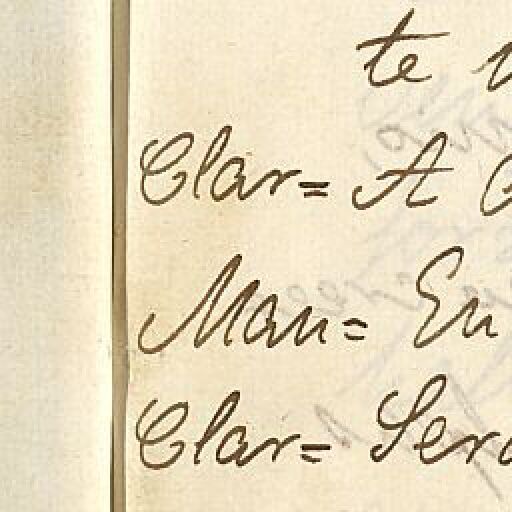 te
Clar= A
Mau= En
Clar= Será